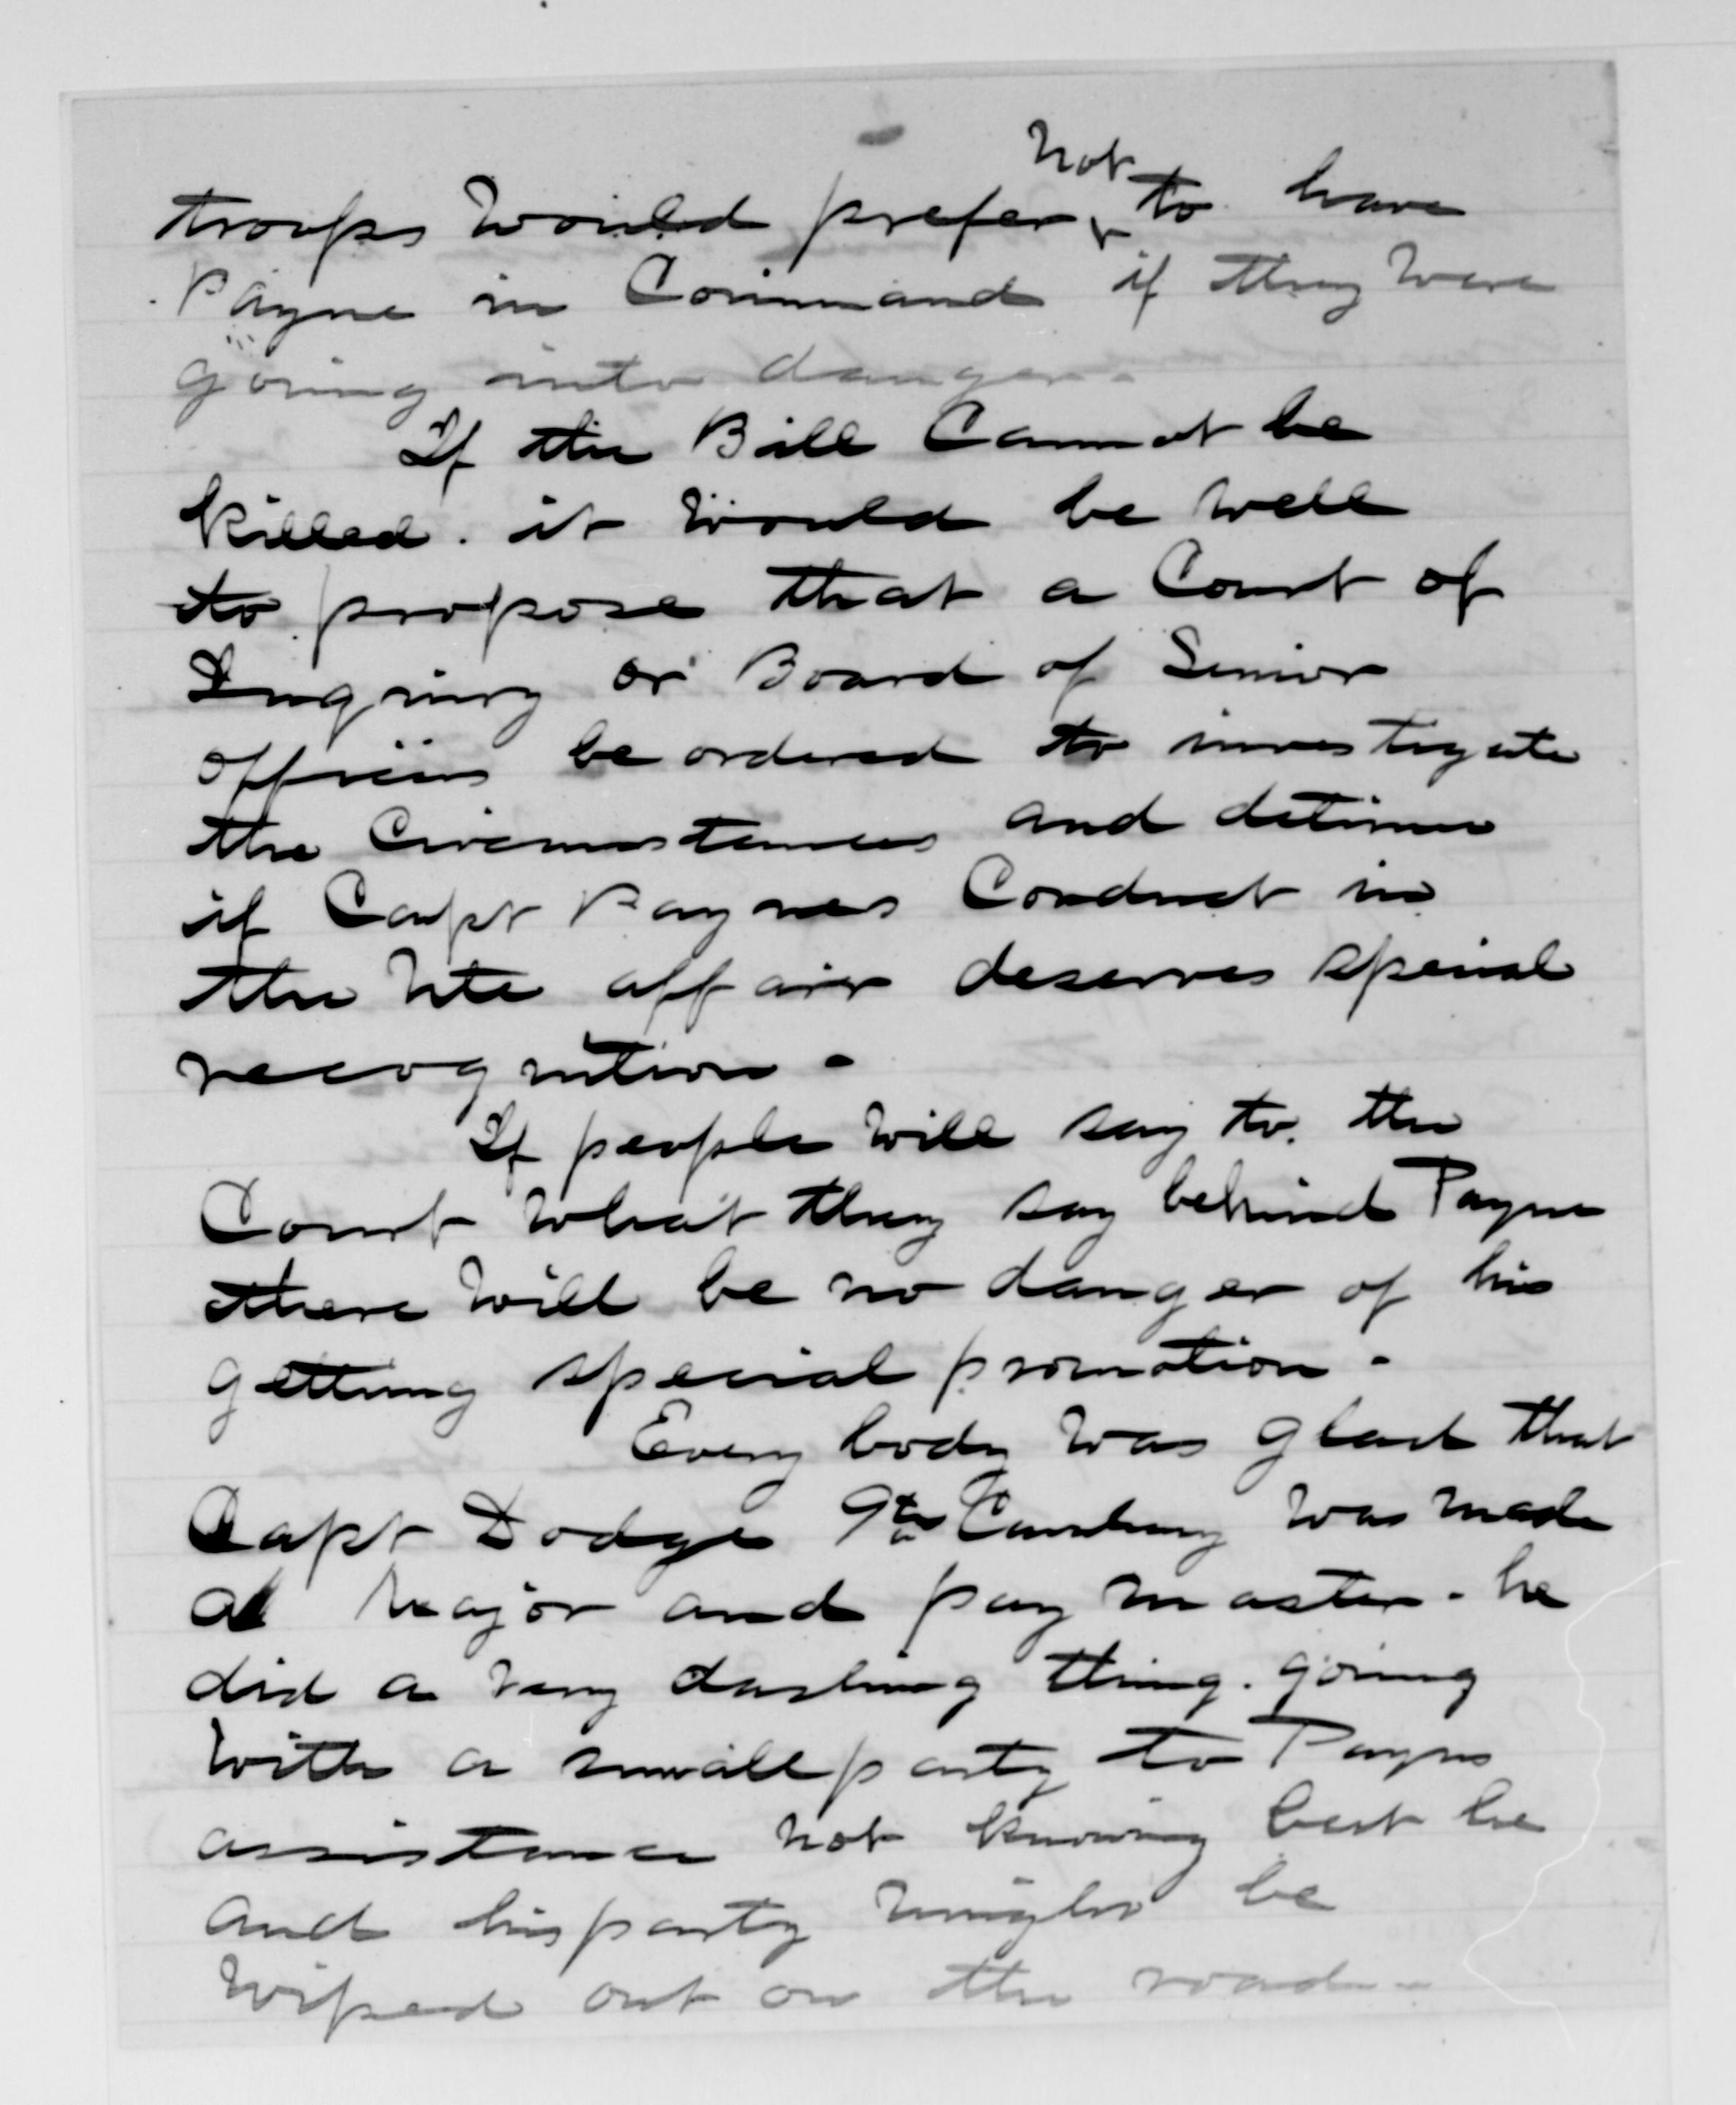 troops would prefer not to have
Payne in Command if they were
going into danger.
If the Bill Cannot be
killed. it would be well
to propose that a Court of
Inquiry or Board of Senior
officers be ordered to investigate
the Circumstances and determine
if Capt Paynes Conduct in
the Ute affair deserves special
recognition.
If people will say to the
Court what they say behind Payne
there will be no danger of his
getting special promotion.
Every body was glad that
Capt Dodge 9th Cavalry was made
a Major and pay master. he
did a very dashing thing. going
with a small party to Paynes
assistance not knowing but he
and his party might be
wiped out on the road.